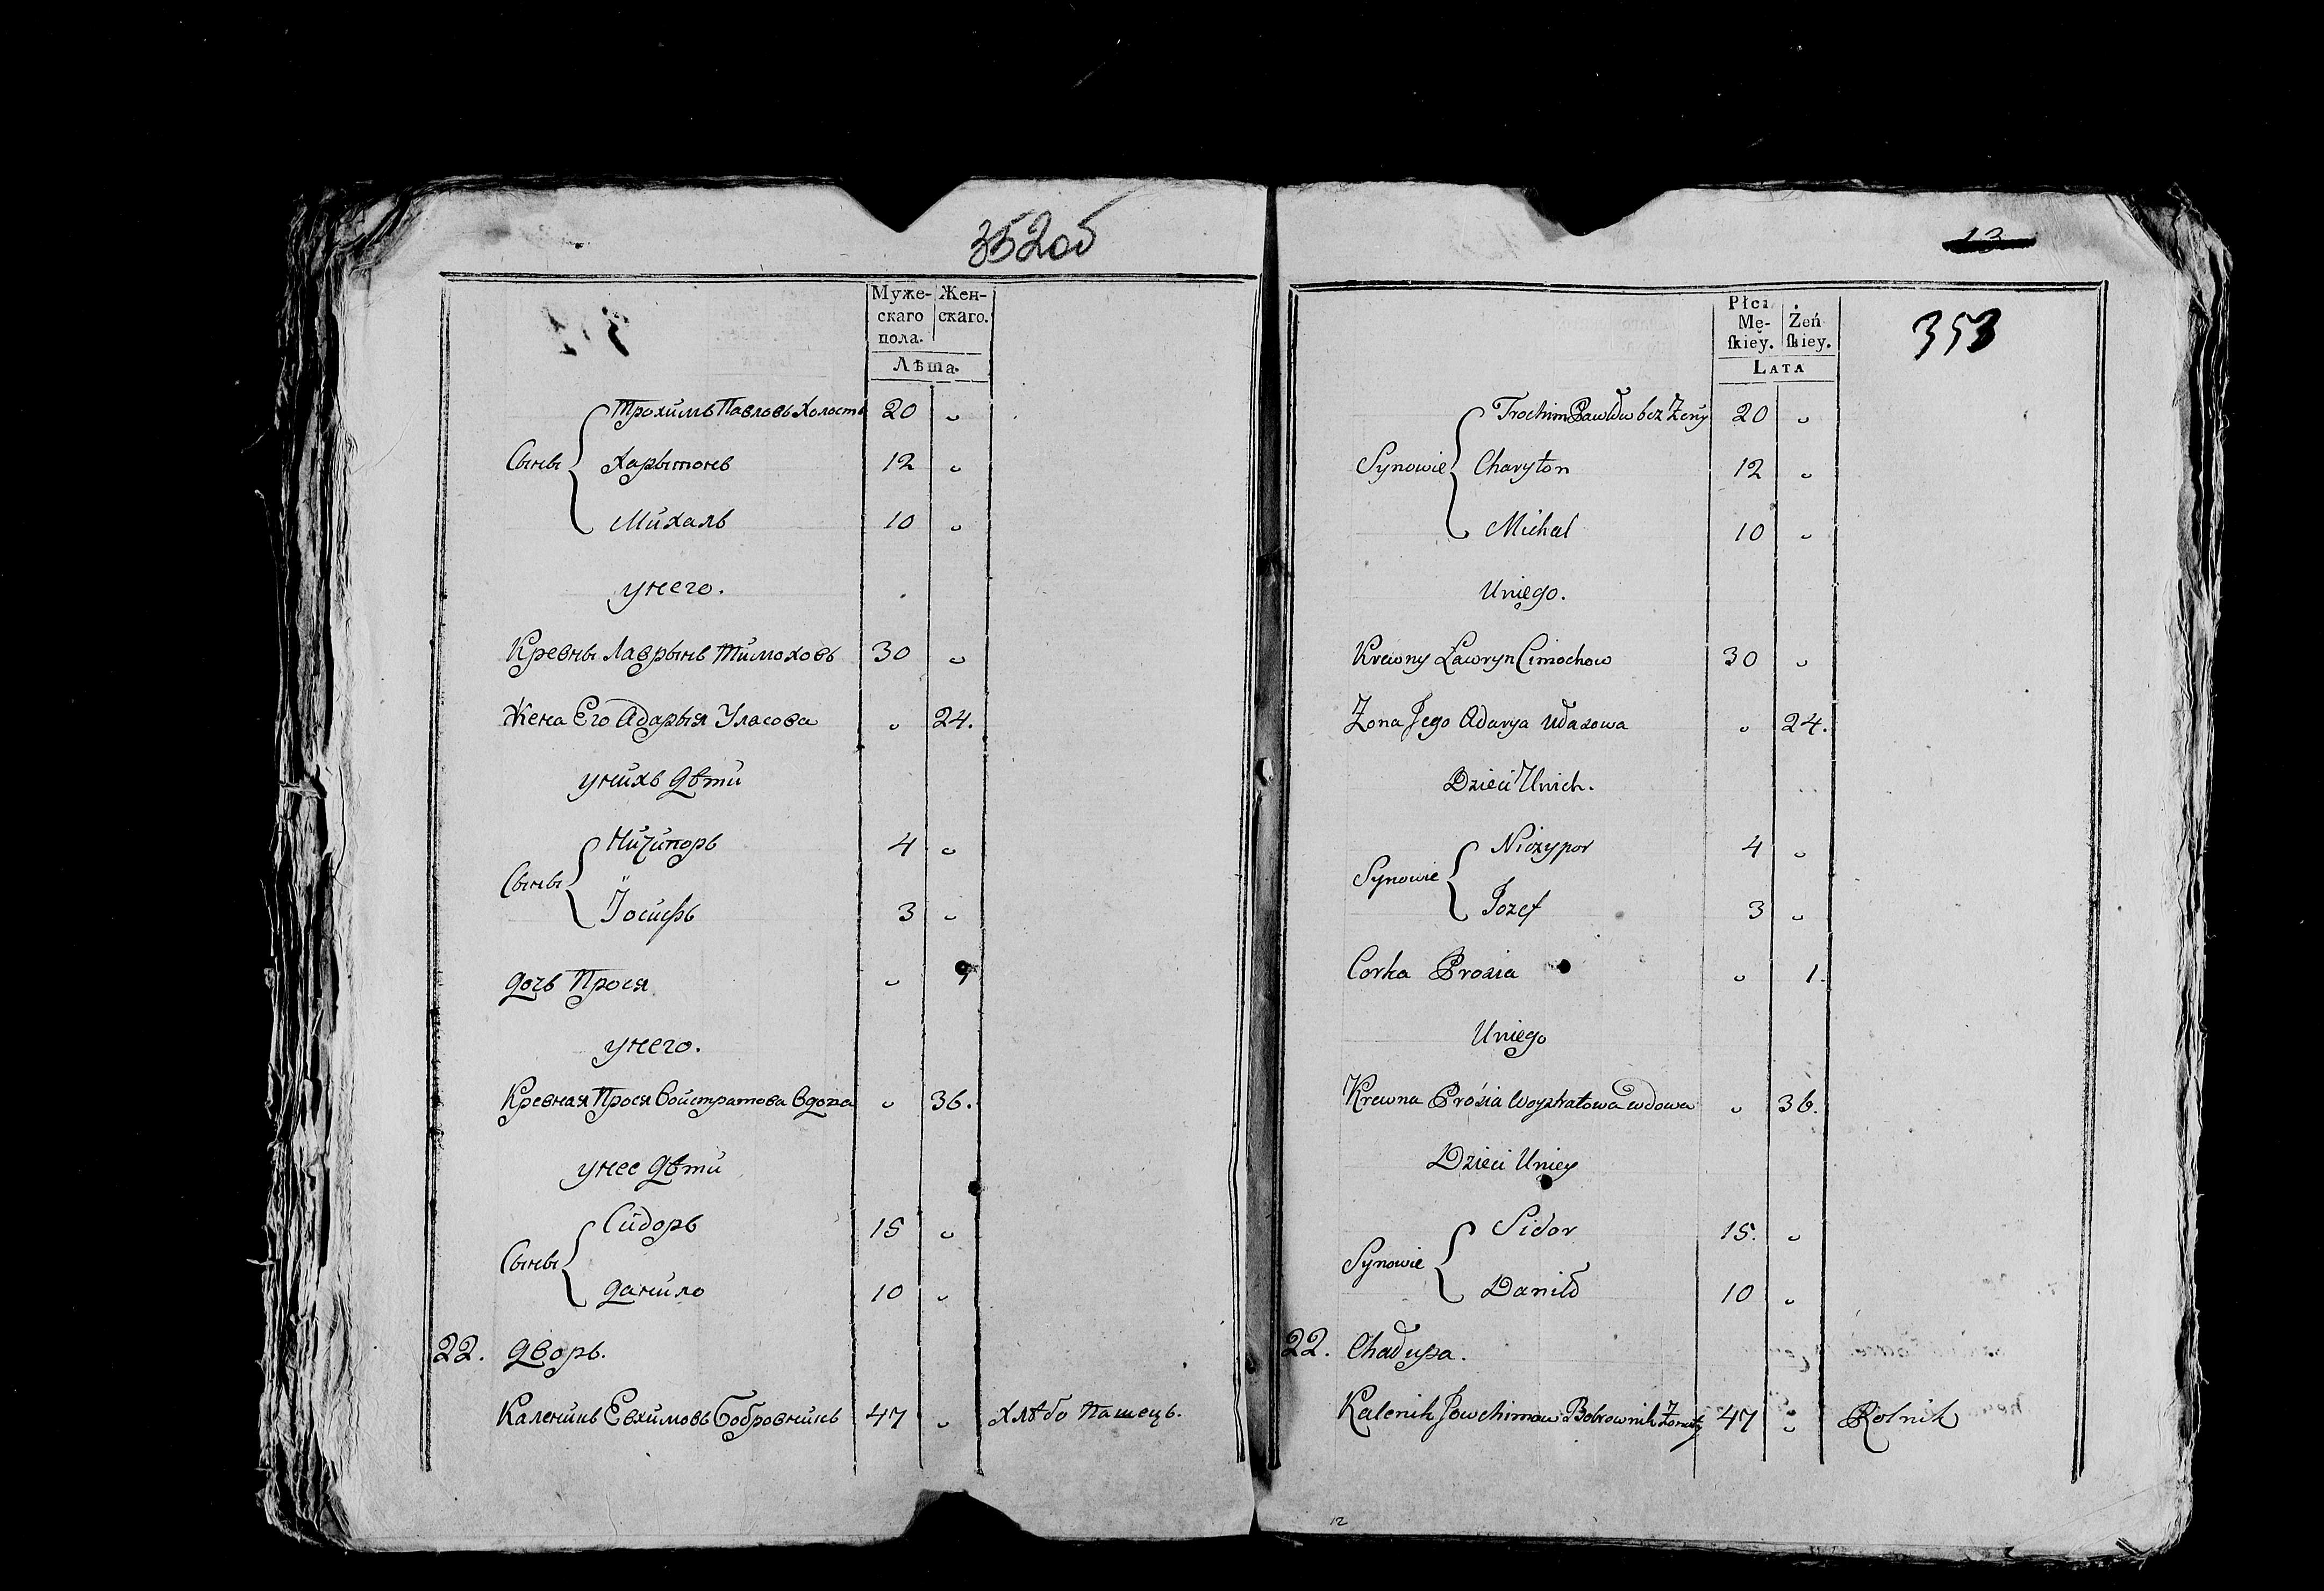 352об
Муже- Жен-
скаго скаго.
пола.
Лѣта.
Трохимъ Павловъ Холостъ 20 "
Сыны
Харытонъ 12 "
Михалъ 10 "
унего.
Кревны Лаврынъ Тимоховъ 30 "
Жена Его Адарыя Уласова " 24.
унихъ дѣти
Ничипоръ 4 "
Сыны
Іосифъ 3 "
дочь Прося " 1
унего.
Кревная Прося Войстратова Вдова " 36.
унее дѣти
Сидоръ 15 "
Сыны
данило 10 "
22. дворъ.
Каленикъ Евхимовъ Бобровникъ 47 " хлѣбо пашецъ.
13
353
Płci
Mę- Żeń
ſkiey. ſkiey.
LATA
Trochim Pawłow bez Żeny 20 "
Synowie
Charyton 12 "
Michal 10 "
Uniego.
Krewny Ławryn Cimochow 30 "
Zona Jego Adarya Ułasowa " 24.
Dzieci Unich.
Niczypor 4 "
Synowie
Jozef 3 "
Corka Prosia " 1.
Uniego
Krewna Prosia Woystratowa wdowa " 36.
Dzieci Uniey
Sidor 15. "
Synowie
Daniło 10 "
22. Chałupa.
Kalenik Jowchimow Bobrownik Żonaty 47 " Rolnik
12